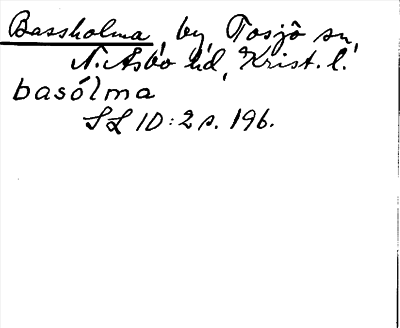 Bassholma, by, Tosjö sn,
N. Åsbo hd, Krist. l.
basólma
SL 10:2 s. 196.